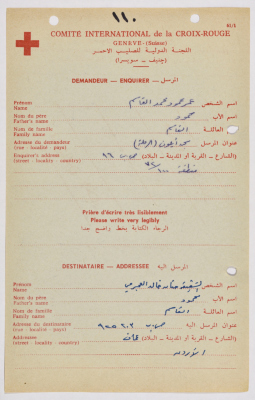 ١١٠
COMITÉ INTERNATIONAL de la CROIX-ROUGE
GENÈVE (Suisse)
اللجنة الدولية للصليب الاحمر
(جنيف - سويسرا)
DEMANDEUR - ENQUIRER - المرسل
Prénom
Name
اسم الشخص عمر محمود محمد القاسم
Nom du père
Father's name
اسم الأب محمود
Nom de famille
Family name
العائلة القاسم
Adresse du demandeur
(rue - localité - pays)
عنوان المرسل
Enquirer's address
(street - locality - country)
(الشارع - القرية أو المدينة - البلاد) ص.ب ٩٦
منطقة
Prière d'écrire très lisiblement
Please write very legibly
الرجاء الكتابة بخط واضح جدا
DESTINATAIRE - ADDRESSEE - المرسل اليه
Prénom
Name
اسم الشخص خالد
Nom du père
Father's name
اسم الأب محمود
Nom de famille
Family name
العائلة القاسم
Adresse du destinataire
(rue - localité - pays)
عنوان المرسل اليه ص.ب
Addressee
(street - locality - country)
(الشارع - القرية أو المدينة - البلاد) عمان
الأردن